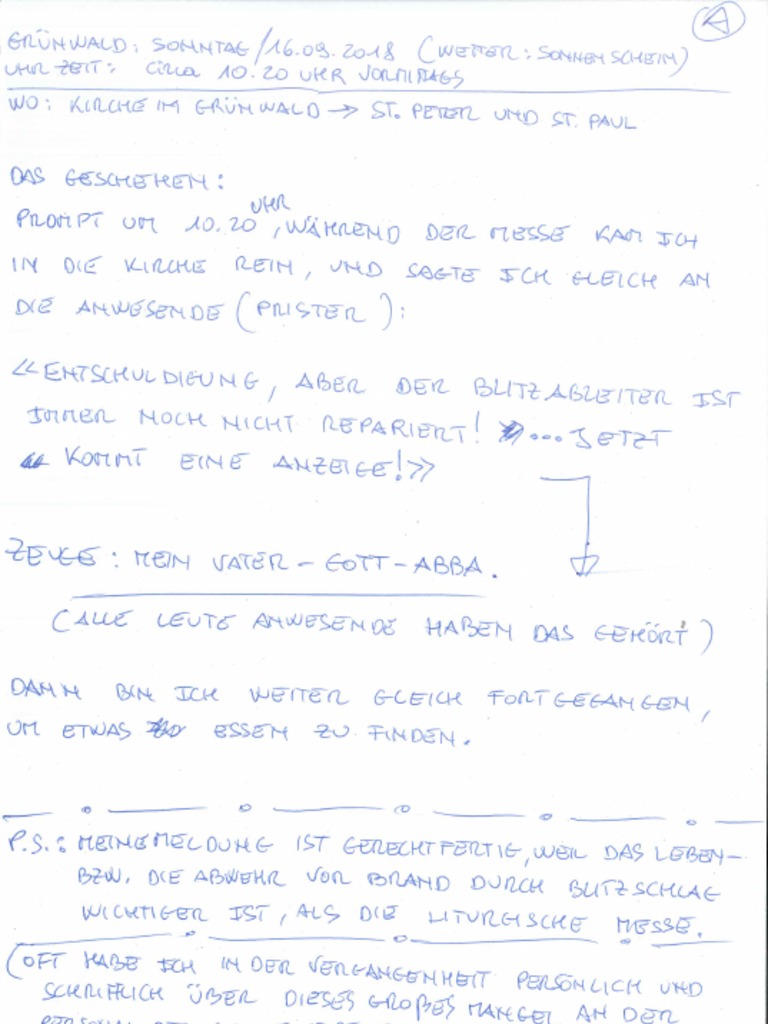 A
GRÜNWALD: SONNTAG/16.09.2018 (WETTER: SONNENSCHEIN)
UHRZEIT: CIRCA 10.20 UHR VORMITTAGS
WO: KIRCHE IM GRÜNWALD → ST. PETER UND ST. PAUL
DAS GESCHEHEN:
PROMPT UM 10.20 UHR, WÄHREND DER MESSE KAM ICH
IN DIE KIRCHE REIN, UND SAGTE ICH GLEICH AN
DIE ANWESENDE (PRISTER):
«ENTSCHULDIGUNG, ABER DER BLITZABLEITER IST
IMMER NOCH NICHT REPARIERT! ...JETZT
KOMMT EINE ANZEIGE!»
ZEUGE: MEIN VATER-GOTT-ABBA.
(ALLE LEUTE ANWESENDE HABEN DAS GEHÖRT)
DANN BIN ICH WEITER GLEICH FORTGEGANGEN,
UM ETWAS ESSEN ZU FINDEN.
P.S.: MEINE MELDUNG IST GERECHTFERTIG, WEIL DAS LEBEN-
BZW. DIE ABWEHR VOR BRAND DURCH BLITZSCHLAG
WICHTIGER IST, ALS DIE LITURGISCHE MESSE.
(OFT HABE ICH IN DER VERGANGENHEIT PERSÖNLICH UND
SCHRIFTLICH ÜBER DIESES GROßES MANGEL AN DER